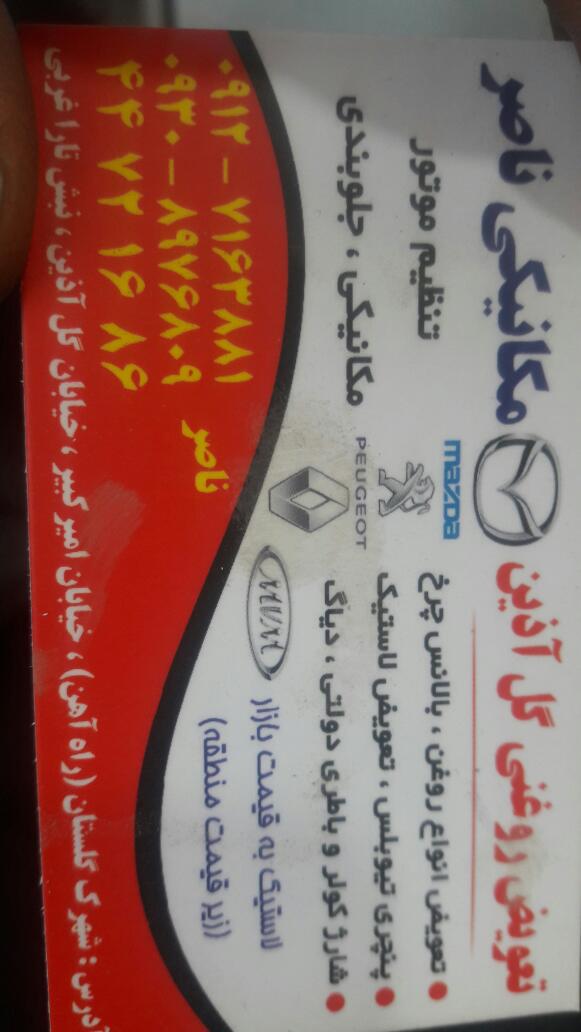 تعویض روغنی گل آذین
مکانیکی ناصر
mazda
PEUGEOT
MVM
تعویض انواع روغن ، بالانس چرخ
پنچری تیوبلس ، تعویض لاستیک
شارژ کولر و باطری دولتی ، دیاگ
لاستیک به قیمت بازار
(زیر قیمت منطقه)
تنظیم موتور
مکانیکی ، جلوبندی
۰۹۱۲ - ۷۱۶۳۸۸۱
۰۹۳۰ - ۸۹۷۶۸۰۹
ناصر
۴۴ ۷۲ ۱۶ ۸۶
آدرس : شهرک گلستان (راه آهن) ، خیابان امیر کبیر ، خیابان گل آذین ، نبش تارا غربی